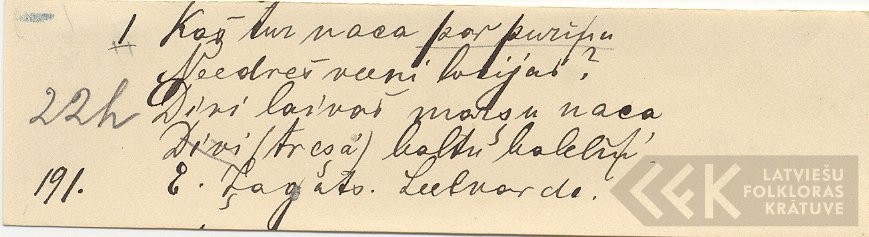 1 Kas tur naca par puriņu
Needreš veeni locijas?
22h Divi laivas marsu naca
Divi (tresā) baltu baleliņi
191. E. Zagāts. Leelvarde.
LATVIEŠU
FOLKLORAS
KRĀTUVE